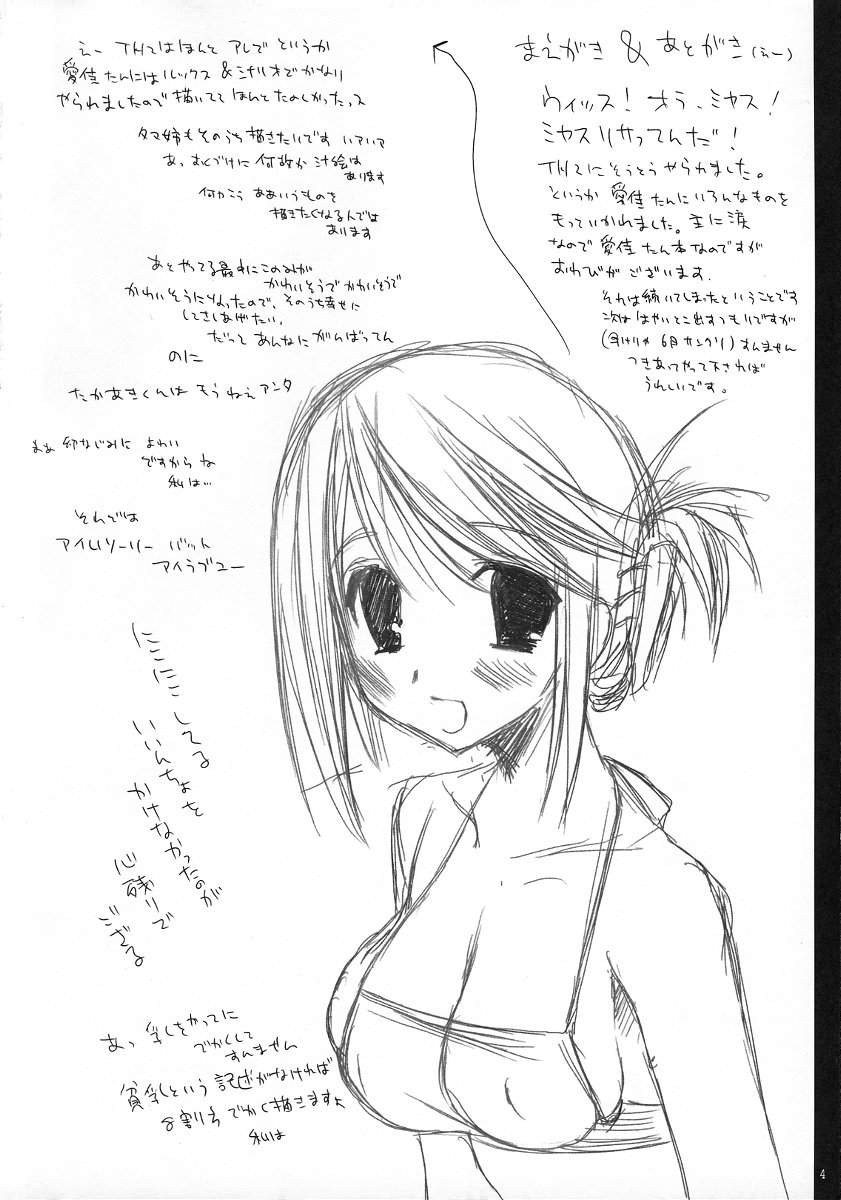 まえがき & あとがき(えー)
ウィッス! オラ、ミヤス!
ミヤスリサってんだ!
TH2にそうとうやられました。
というか 愛佳たんにいろんなものを
もっていかれました。主に涙
なので愛佳たん本なのですが
おわびがございます.
それは続いてしまったということです
次は はやいとこ出すつもりですが
6月 サンクリ)すんません
つきあってやって下されば
うれしいです。
えー TH2はほんと アレで というか
愛佳たんにはルックス & シナリオでかなり
やられましたので描いてて ほんとたのしかったっス
タマ姉もそのうち描きたいです いアいア
あっ むくづけに 何故か 汁絵は
あります
何かこう ああいうものを
描きたくなるんでは
あります
あとやってる最中にこのみが
かわいそうで かわいそうで
かわいそうになったので、そのうち幸せに
してさしあげたい.
だって あんなにがんばってん
のに
たかあきくんは もうねえアンタ
まぁ 幼なじみに よわい
ですからな
私は…
それでは
アイムソーリー バット
アイラブユー
にこにこしてる
いいんちょを
かけなかったのが
心残りで
ござる
あっ 乳をかってに
でかくして
すんません
貧乳という記述がなければ
8割り方でかく描きますよ
私は
4